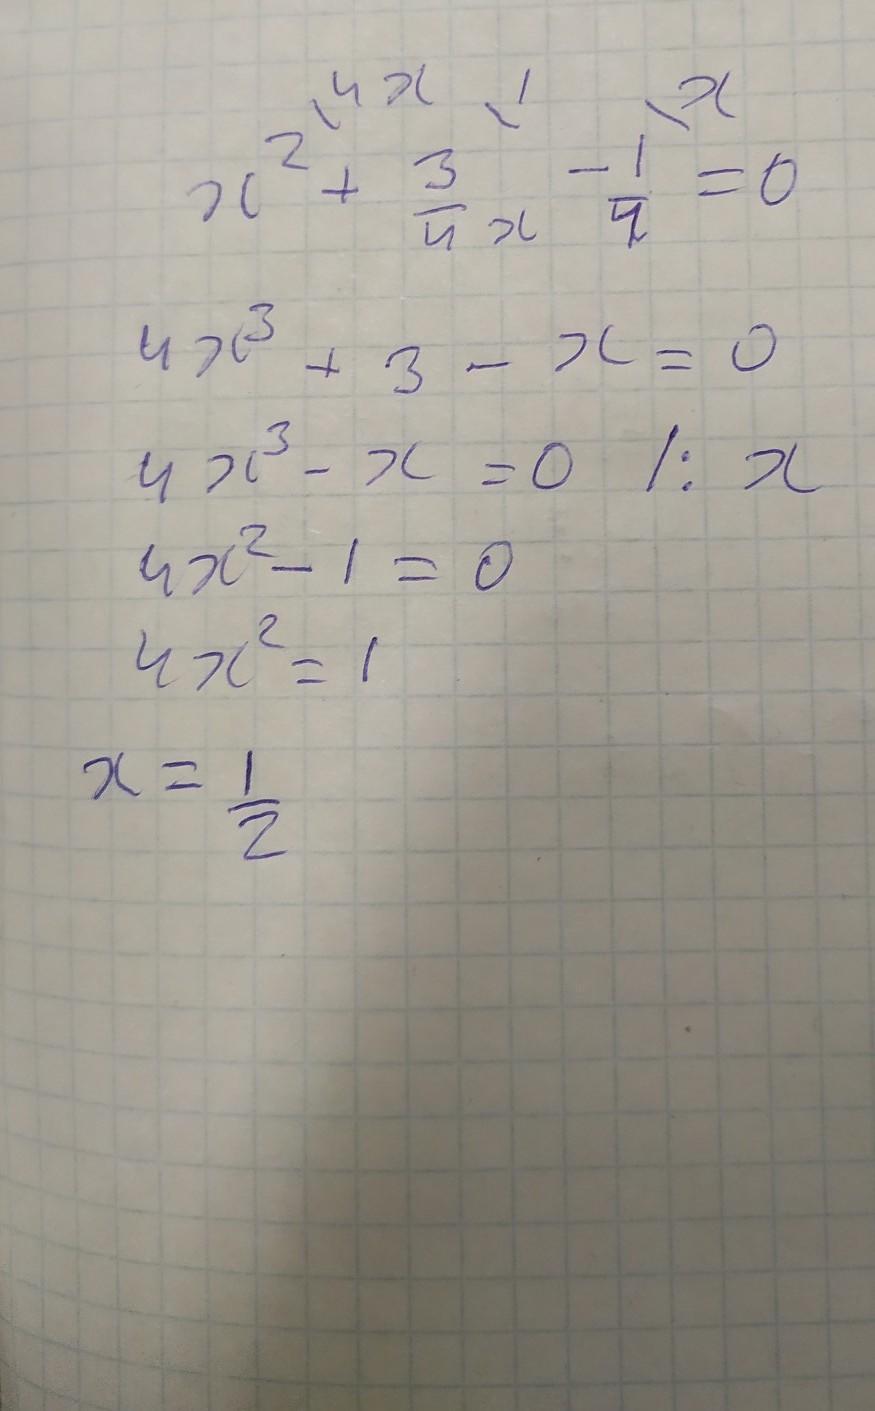 \4x \1 \x
x² + 3/4 x - 1/4 = 0
4x³ + 3 - x = 0
4x³ - x = 0 /: x
4x² - 1 = 0
4x² = 1
x = 1/2